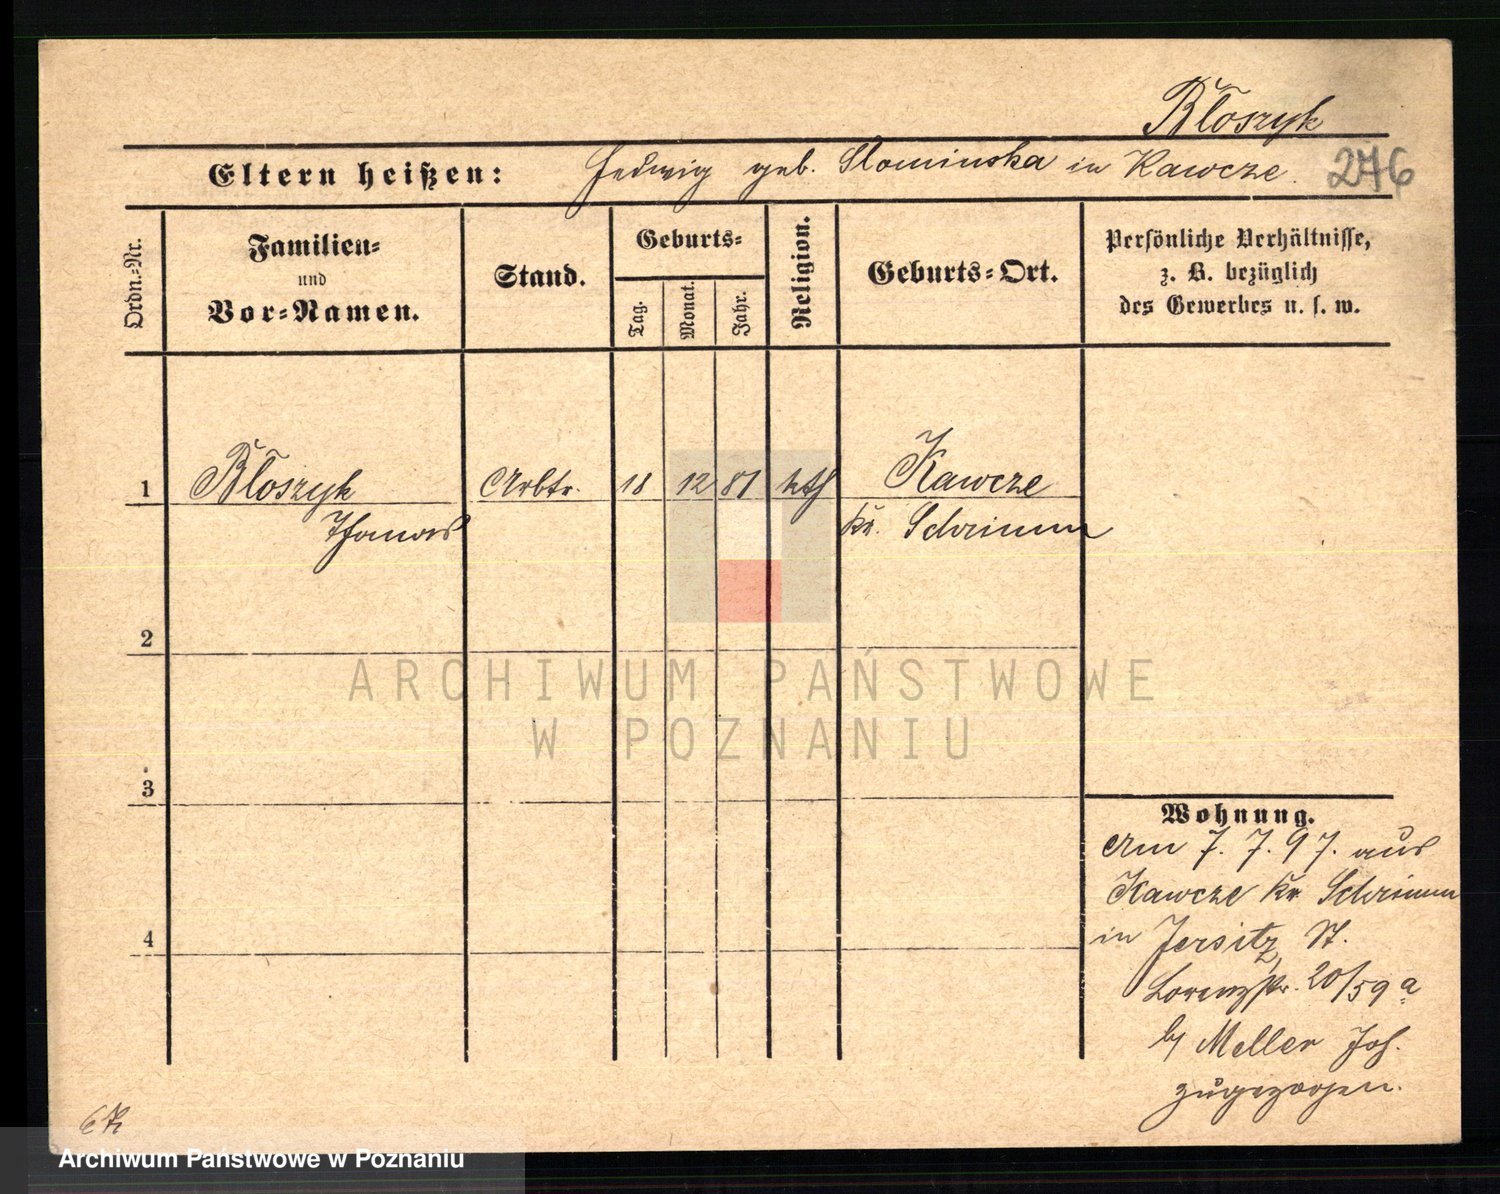 Błoszyk
Eltern heißen: Hedwig geb. Slominska in Kawcze.
276
Ordn.-Nr.
Familien-
und
Vor-Namen.
Stand.
Geburts-
Tag.
Monat.
Jahr.
Religion.
Geburts-Ort.
Persönliche Verhältnisse,
z. B. bezüglich
des Gewerbes u. s. w.
1 Błoszyk Arbtr. 18 12 81 kth Kawcze
Thomas Kr. Schrimm
2
ARCHIWUM PAŃSTWOWE
W POZNANIU
3
4
Wohnung.
Am 7. 7. 97. aus
Kawcze Kr Schrimm
in Jersitz, St.
Lorenzstr. 20/59 a
by Meller Joh.
zugezogen.
Archiwum Państwowe w Poznaniu